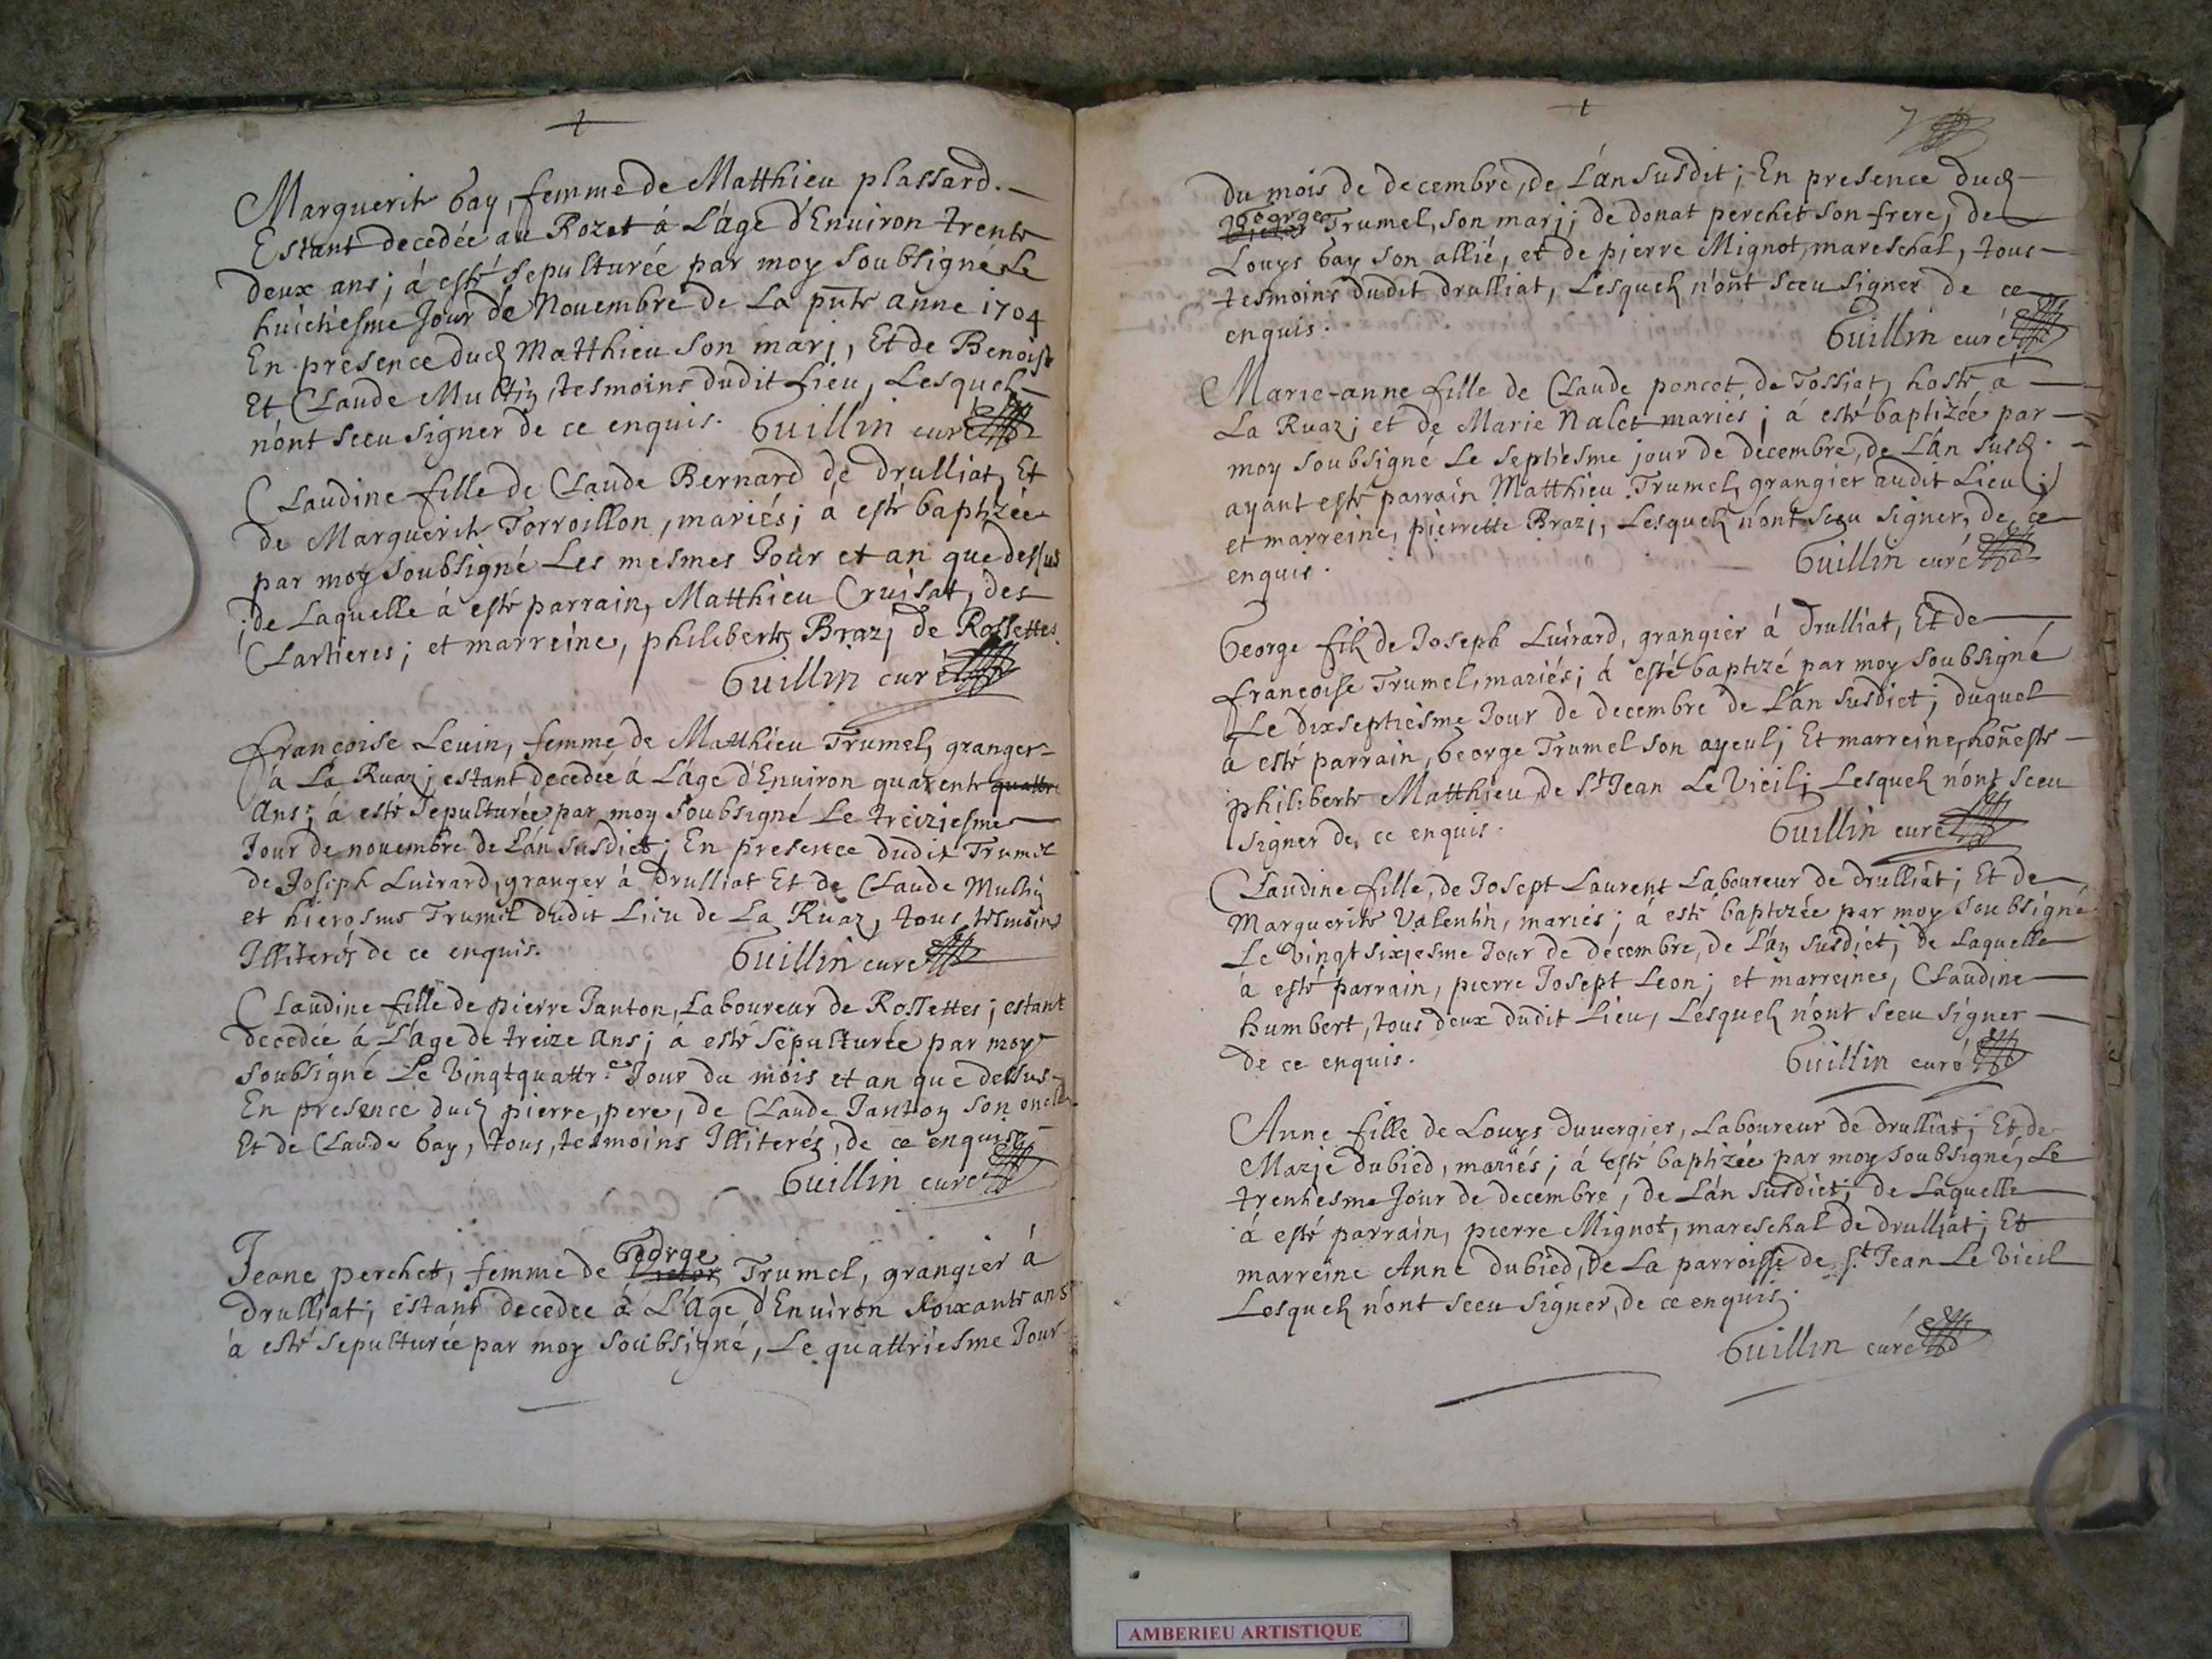 Marguerite Gay, femme de Matthieu plassard.
Estant decedée au Rozet á L'áge d'Enuiron trente
deux ans; á esté sepulturée par moy soubsigné Le
huictiesme Jour de Nouembre de La pnte anne 1704
En presence dud Matthieu son marj, Et de Benoist
Et Claude Multin tesmoins dudit Lieu, Lesquels
n'ont sceu signer de ce enquis. Guillin curé
Claudine fille de Claude Bernard de drulliat, Et
de Marguerite Torroillon, mariés; á esté baptizée
par moy soubsigné Les mesmes Jour et an que dessus
; de Laquelle á esté parrain, Matthieu Cruisat, des
Clartieres; et marreine, philiberte Brazj de Rossettes.
Guillin curé
françoise Leuin, femme de Matthieu Trumel, granger
á La Ruaz; estant decedée á L'áge d'Enuiron quarente quattre
Ans; á esté sepulturée par moy soubsigné Le treiziesme
Jour de nouembre de L'án susdict; En presence dudit Trumel
de Joseph Luirard, granger á Drulliat Et de Claude Multin
et hierosme Trumel dudit Lieu de La Ruaz, tous tesmoins
Illiterés de ce enquis. Guillin curé
Claudine fille de pierre Janton, Laboureur de Rossettes; estant
decedée á L'áge de treize Ans; á esté sepulturée par moy
soubsigné Le vingtquattr.e Jour du mois et an que dessus
En presence dud pierre, pere, de Claude Janton son oncle
Et de Claude Gay, tous, tesmoins Illiterés, de ce enquis.
Guillin curé
George
Jeane perchet, femme de Victor Trumel, grangier á
drulliat; estant decedée á L'Age d'Enuiron soixante ans
á esté sepulturée par moy soubsigné, Le quattriesme Jour
du mois de decembre, de L'án susdit; En presence dud
George
Victor Trumel, son marj; de donat perchet son frere; de
Louys Gay son allié, et de pierre Mignot, mareschal, tous
tesmoins dudit drulliat, Lesquels n'ont sceu signer de ce
enquis. Guillin curé
Marie-anne fille de Claude poncet de Tossiat, hoste á
La Ruaz; et de Marie Nalet mariés; á esté baptizée par
moy soubsigné Le septiesme jour de decembre, de L'án susd.
ayant esté parrain Matthieu Trumel, grangier audit Lieu;
et marreine, pierrette Brazj, Lesquels n'ont sceu signer, de ce
enquis. Guillin curé
George fils de Joseph Luirard, grangier á Drulliat, Et de
françoise Trumel, mariés; á esté baptizé par moy soubsigné
Le dixseptiesme Jour de decembre de L'án susdict; duquel
á esté parrain, George Trumel son ayeul; Et marreine, honneste
philiberte Matthieu de St Jean Le Vieil; Lesquels n'ont sceu
signer de, ce enquis. Guillin curé
Claudine fille, de Josept Laurent Laboureur de drulliat; Et de
Marguerite Valentin, mariés; á esté baptizée par moy soubsigné
Le vingt sixiesme Jour de decembre, de L'án susdict; de Laquelle
á esté parrain, pierre Josept Leon; et marreine, Claudine
humbert, tous deux dudit Lieu, Lesquels n'ont sceu signer
de ce enquis. Guillin curé
Anne fille de Louys Duvergier, Laboureur de drulliat; Et de
Marie dubied, mariés; á esté baptizée par moy soubsigné, Le
trentiesme Jour de decembre, de L'án susdict; de Laquelle
á esté parrain, pierre Mignot, mareschal de drulliat; Et
marreine Anne dubied, de La parroisse de St Jean Le Vieil
Lesquels n'ont sceu signer, de ce enquis.
Guillin curé
AMBERIEU ARTISTIQUE